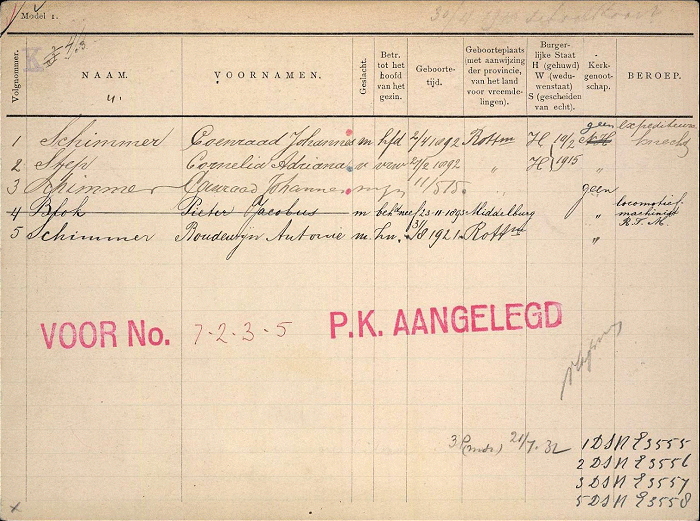 Model 1.
Volgnummer.
NAAM.
VOORNAMEN.
Geslacht.
Betr. tot het hoofd van het gezin.
Geboorte-tijd.
Geboorteplaats (met aanwijzing der provincie, van het land voor vreemde-lingen).
Burger-lijke Staat H (gehuwd) W (wedu-wenstaat) S (gescheiden van echt).
Kerk-genoot-schap.
BEROEP.
1 Schimmer Coenraad Johannes m hfd 2/4 1892 Rottm H 10/2 geen N.H. Expediteurs knecht
2 Step Cornelia Adriana v vouw 1892 " H 1915 "
3 Schimmer Coenraad Johannes m 11/5 15. " geen
4 Blok Pieter Jacobus m 23-11-1893 Middelburg " locomotief-machinist R.T.M.
5 Schimmer Boudewijn Antonie m. zn. 31/8 1921 Rottm "
VOOR No. 1-2-3-5 P.K. AANGELEGD
21/7.32
1 DSN E3555
2 DSN E3556
3 DSN E3557
5 DSN E3558
x